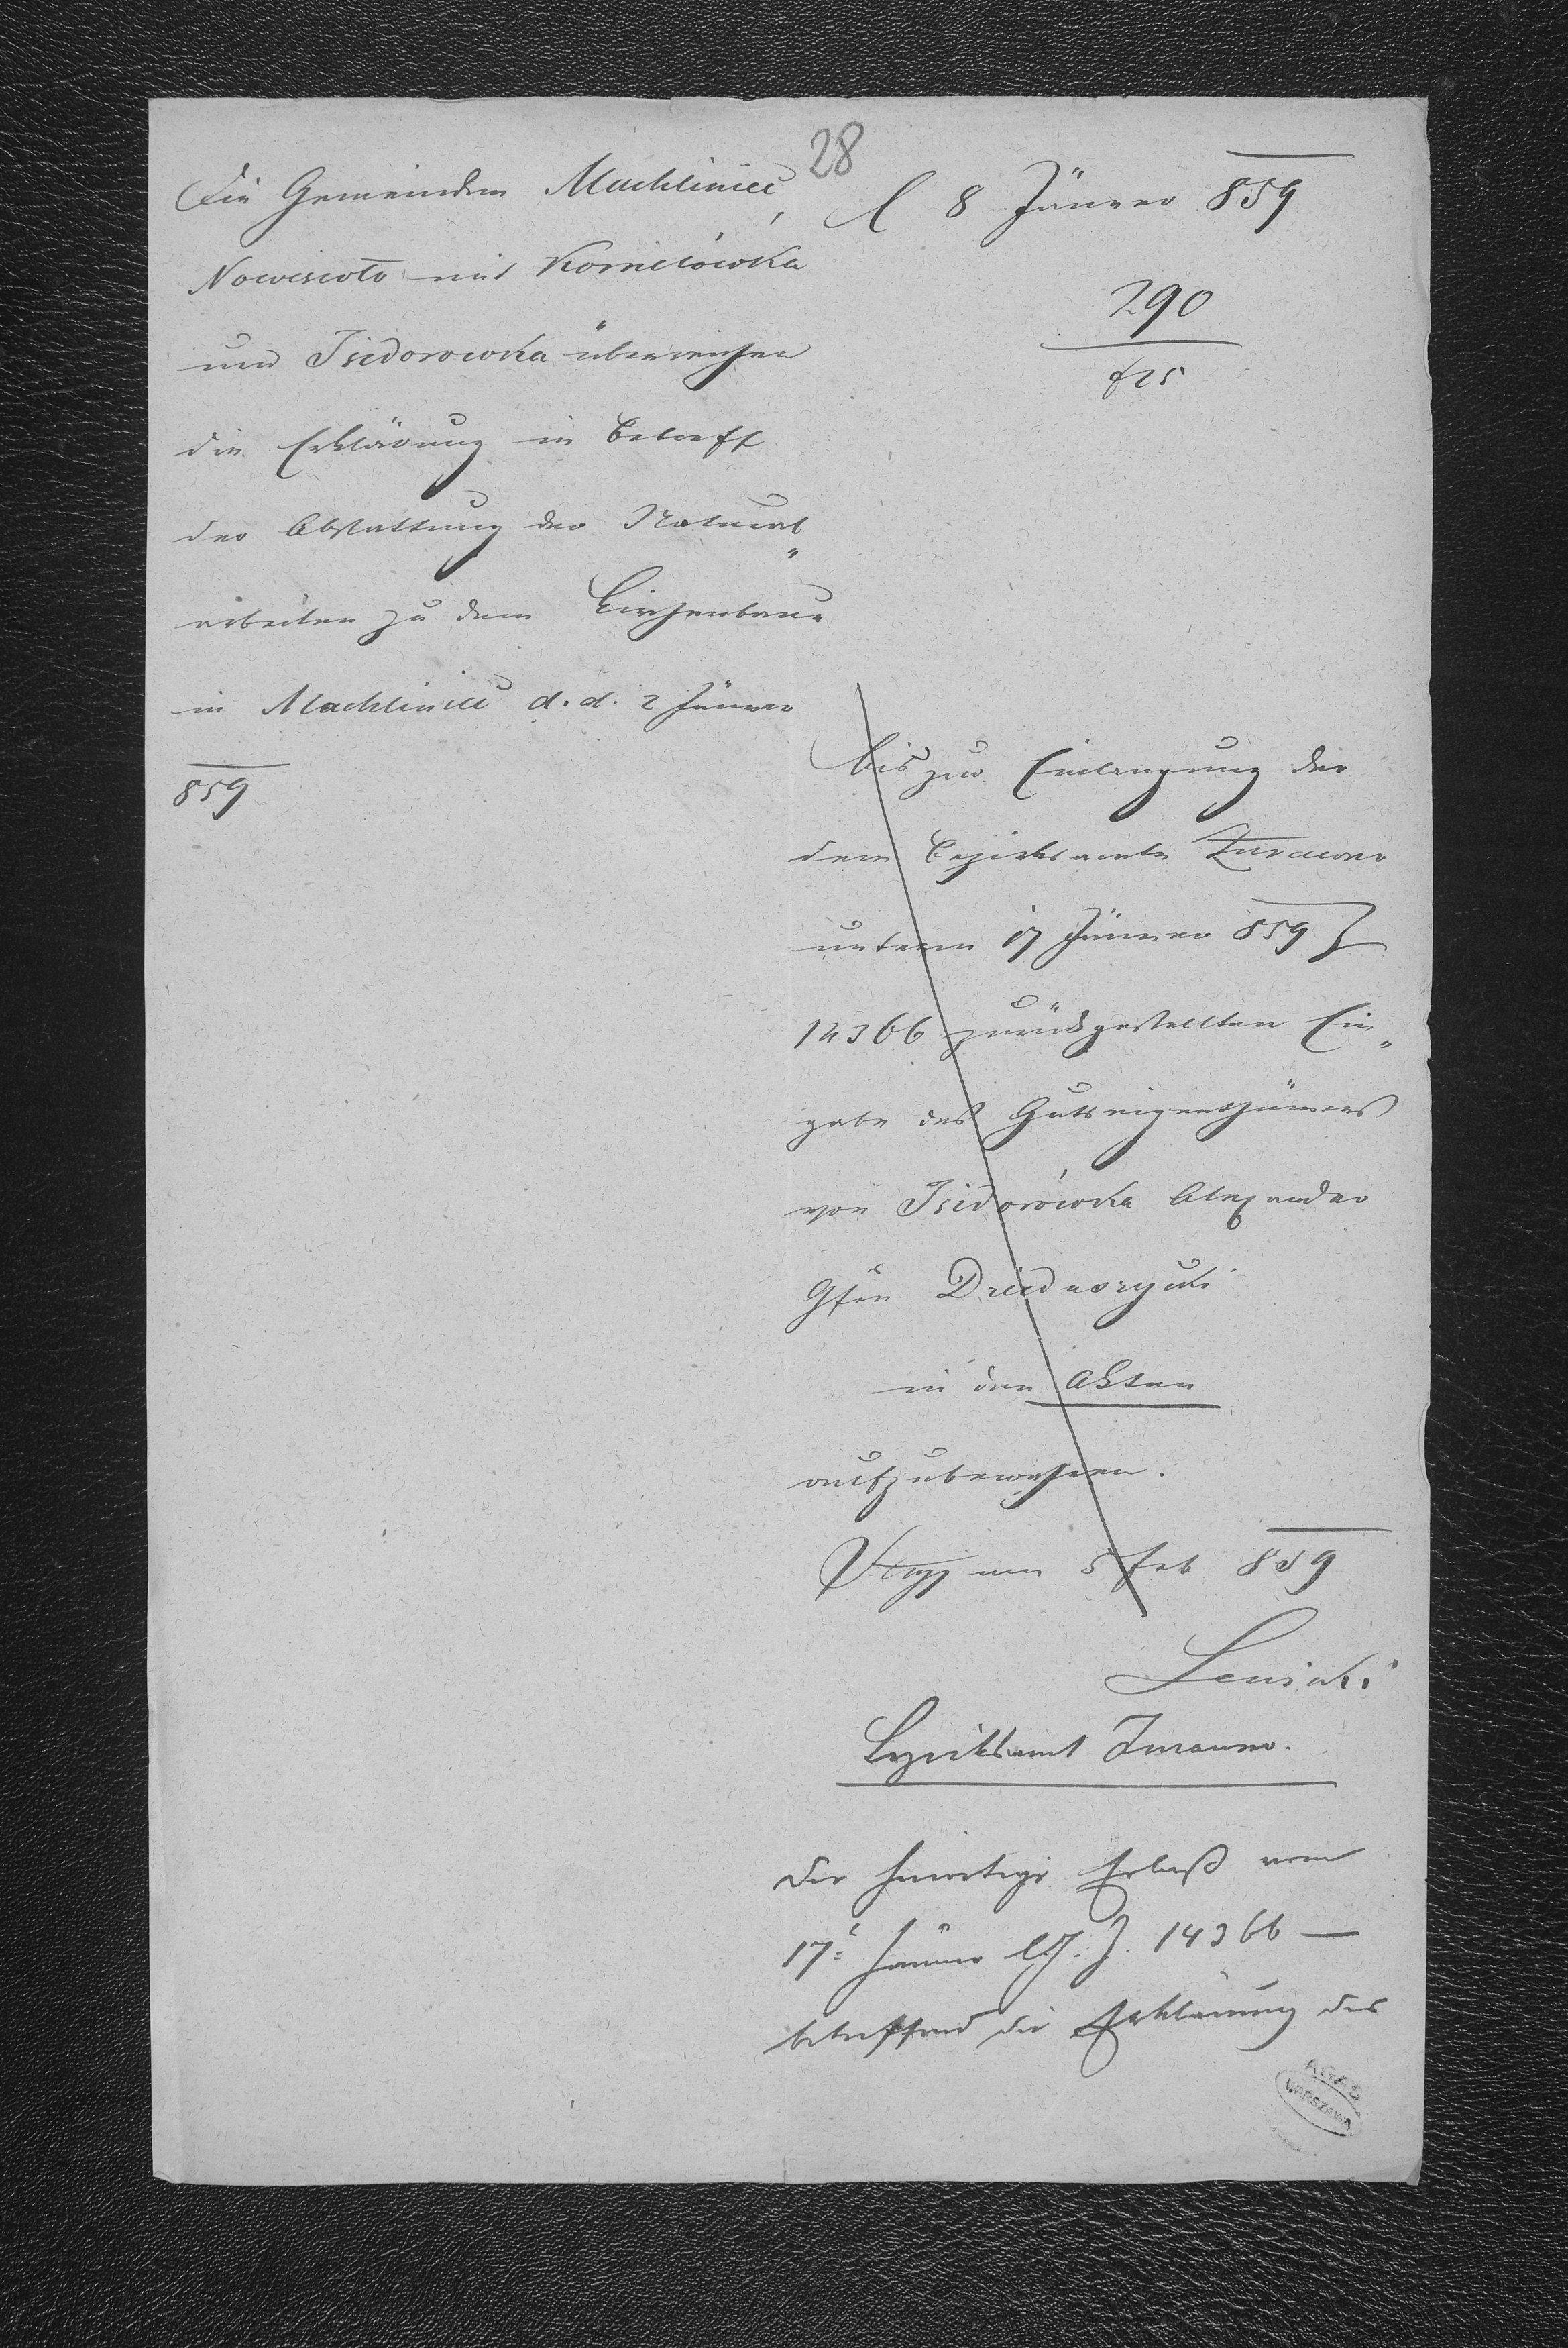 28
Die Gemeinden Machliniec,
Nowesioło mit Kornelówka
und Isidorowka überreichen
die Erklärung in Betreff
der Abstattung der Natural
arbeiten zu dem Kirchenbaue
in Machliniec d. d. 2 Jänner
859
8 Jänner 859
290
bis zur Einlangung der
dem Bezirksamte Żurawno
unterm 17 Jänner 859 Z
14366 zurückgestellten Ein
gabe des Gutseigenthümers
von Isidorówka Alexander
Gfen Dzieduszycki
in den Akten
aufzubewahren.
Stryj am 5 Feb 859
Bezirksamt Żurawno.
Der hierortige Erlaß vom
17t Jänner l. J. Z. 14366 —
betreffend die Erklärung des
AGAD
WARSZAWA